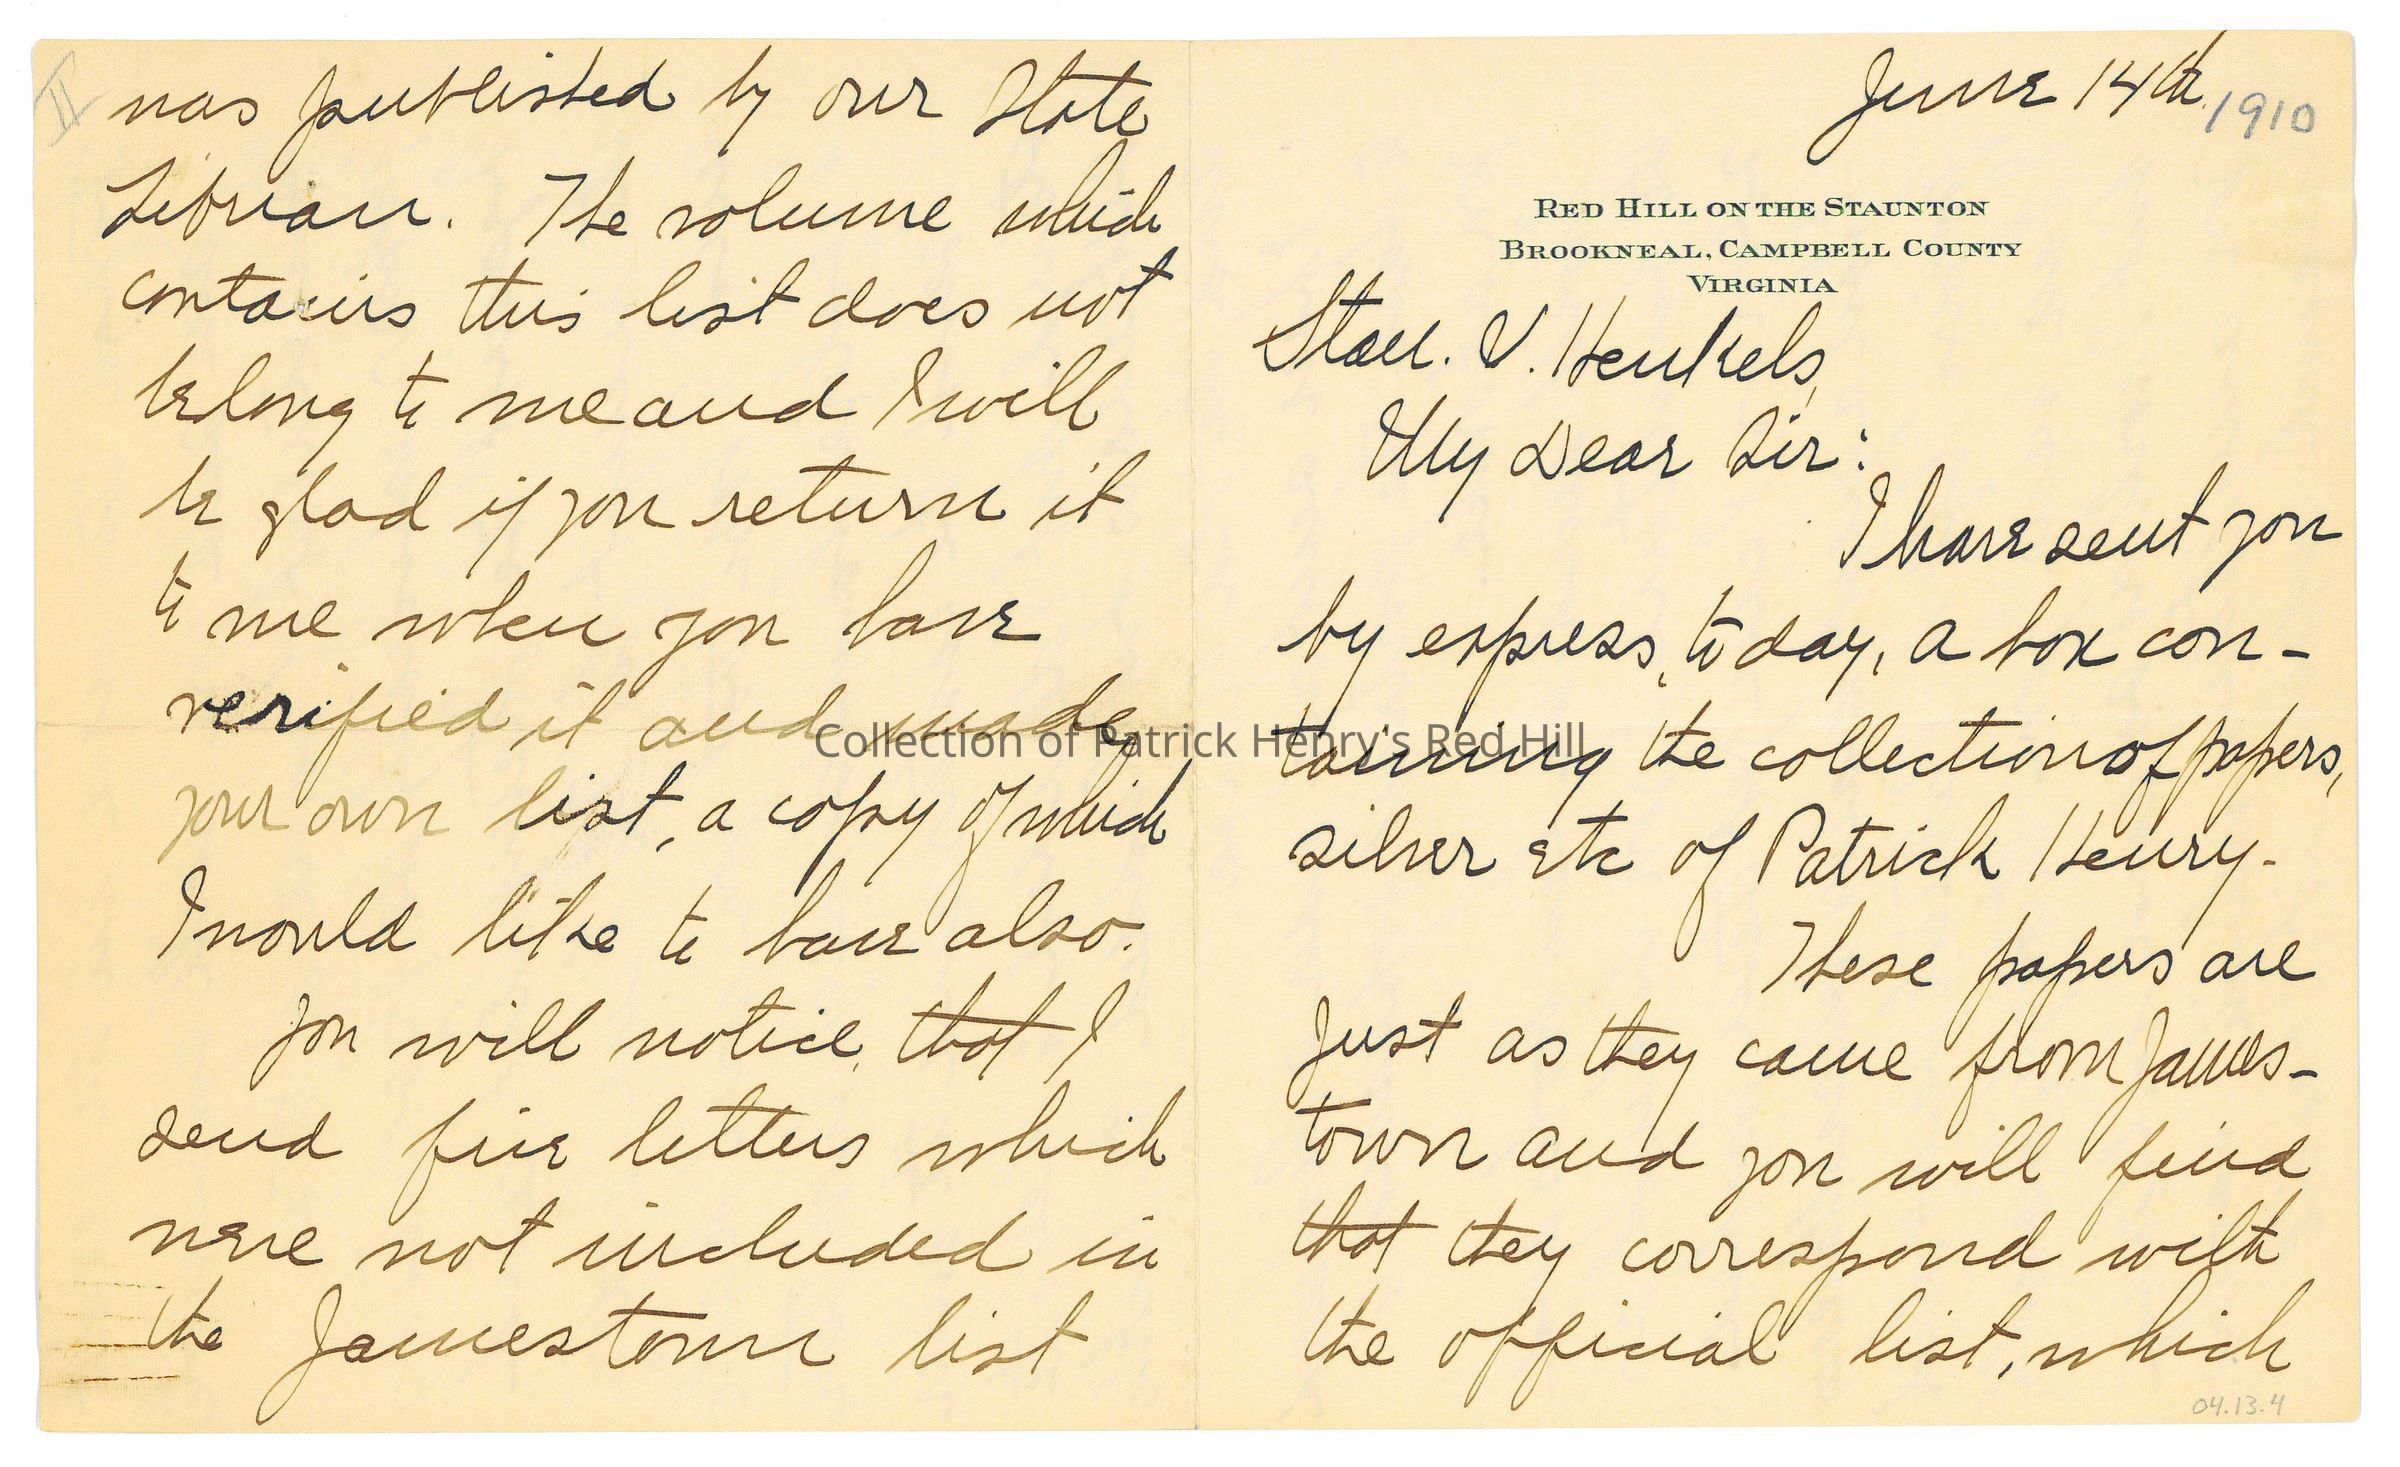 June 14th 1910
RED HILL ON THE STAUNTON
BROOKNEAL, CAMPBELL COUNTY
VIRGINIA
Stan. V. Henkels,
My Dear Sir:
I have sent you
by express, to day, a box con-
taining the collection of papers,
silver etc of Patrick Henry.
These papers are
just as they came from James-
town and you will find
that they correspond with
the official list, which
04.13.4
II
was published by our State
Librian. The volume which
contains this list does not
belong to me and I will
be glad if you return it
to me when you have
verified it and made
your own list, a copy of which
I would like to have also.
You will notice, that I
send five letters which
were not included in
the Jamestown list
Collection of Patrick Henry's Red Hill